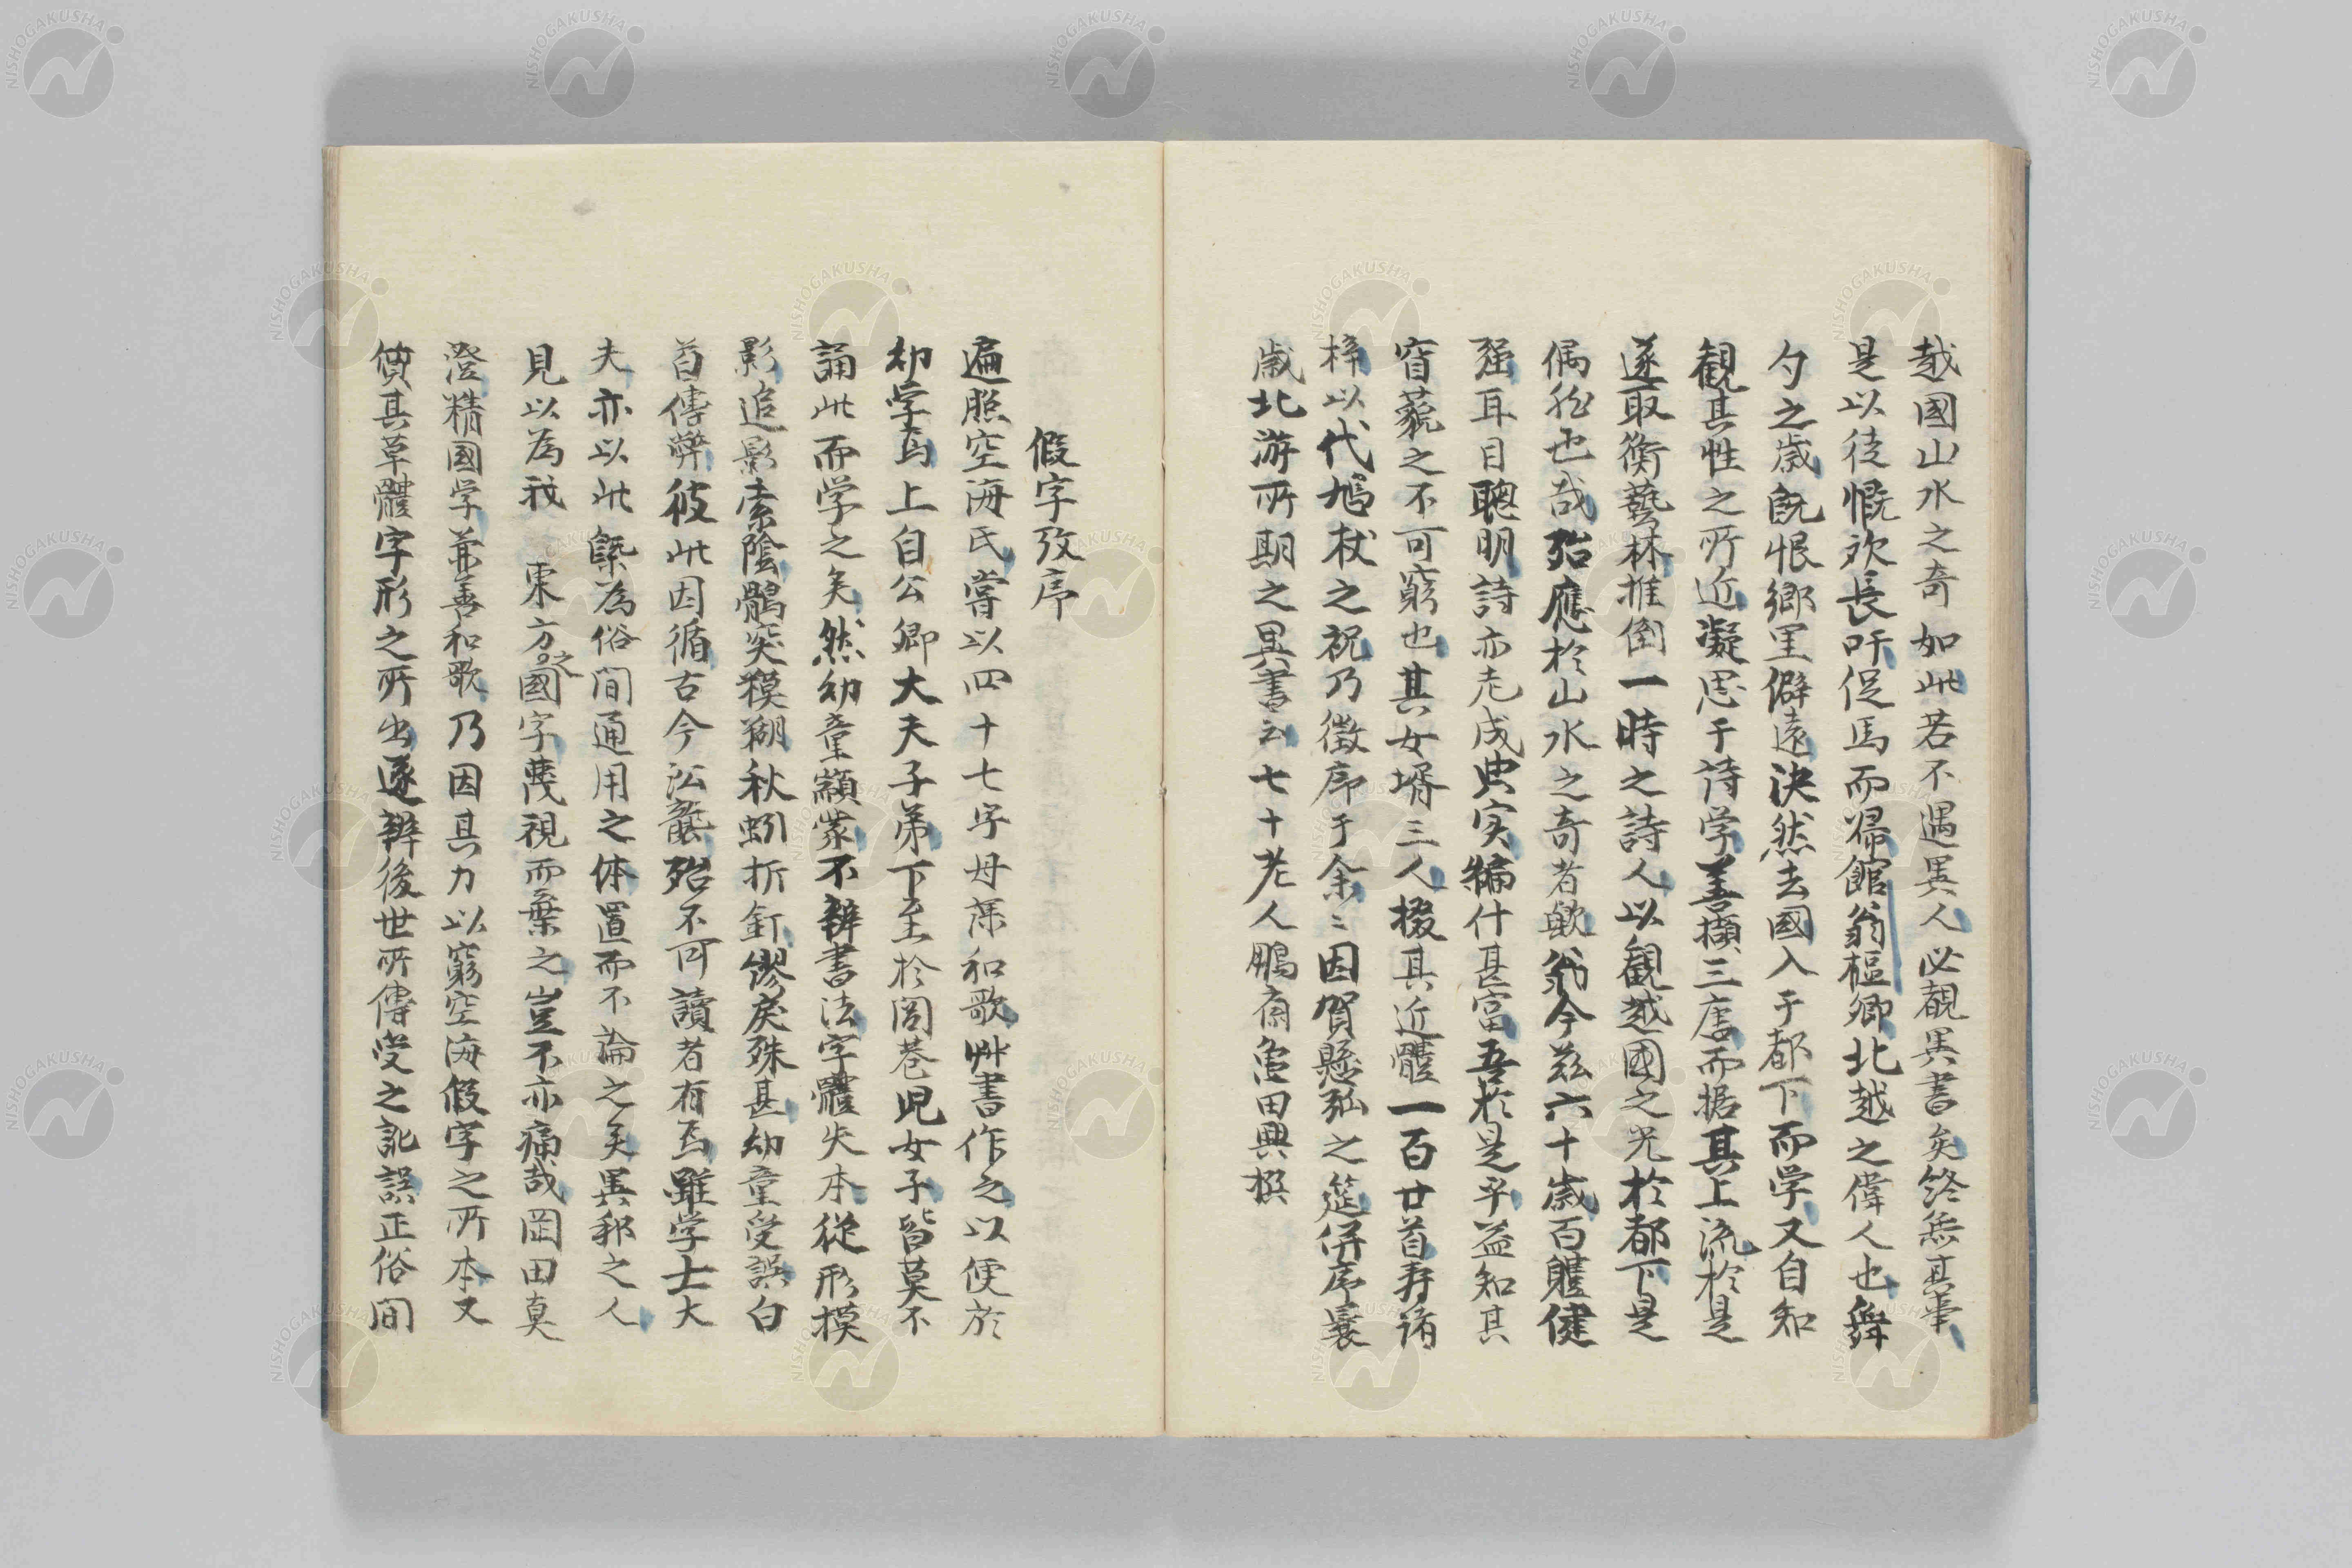 越國山水之奇如此若不遇異人必覩異書矣終無其事
是以徒慨欢長吁促馬而帰館翁樞卿北越之偉人也舞
勺之歳既恨郷里僻遠決然去國入于都下而学又自知
観其性之所近凝思于诗学善擷三唐而据其上流於是
遂取衡藝林推倒一時之詩人以観越國之光於都下是
偶然也哉殆應於山水之奇者歟翁今茲六十歳百體健
强耳目聰明詩亦老成典实編什甚富吾於是乎益知其
窅藐之不可窮也其女壻三人掇其近體一百廿首寿諸
梓以代鳩杖之祝乃徵序于余〻因賀懸弧之筵併序曩
歳北游所期之異書云七十老人鵬斎亀田興撰
假字攷序
遍照空海氏嘗以四十七字母葆和歌艸書作之以便於
幼学焉上自公卿大夫子弟下至於閭巷児女子皆莫不
誦此而学之矣然幼童顓蒙不辨書法字體失本從形摸
影追影索陰鶻突糢糊秋蚓折釭僇戾殊甚幼童受誤白
首傳弊彼此因循古今訟讆殆不可讀者有焉雖学士大
夫亦以此槩為俗間通用之体置而不論之矣異邦之人
見以為我 東方之國字蔑視而棄之豈不亦痛哉岡田真
澄精國学兼善和歌乃因其力以窮空海假字之所本又
質其草體字形之所出遂辨後世所傳受之訛誤正俗間